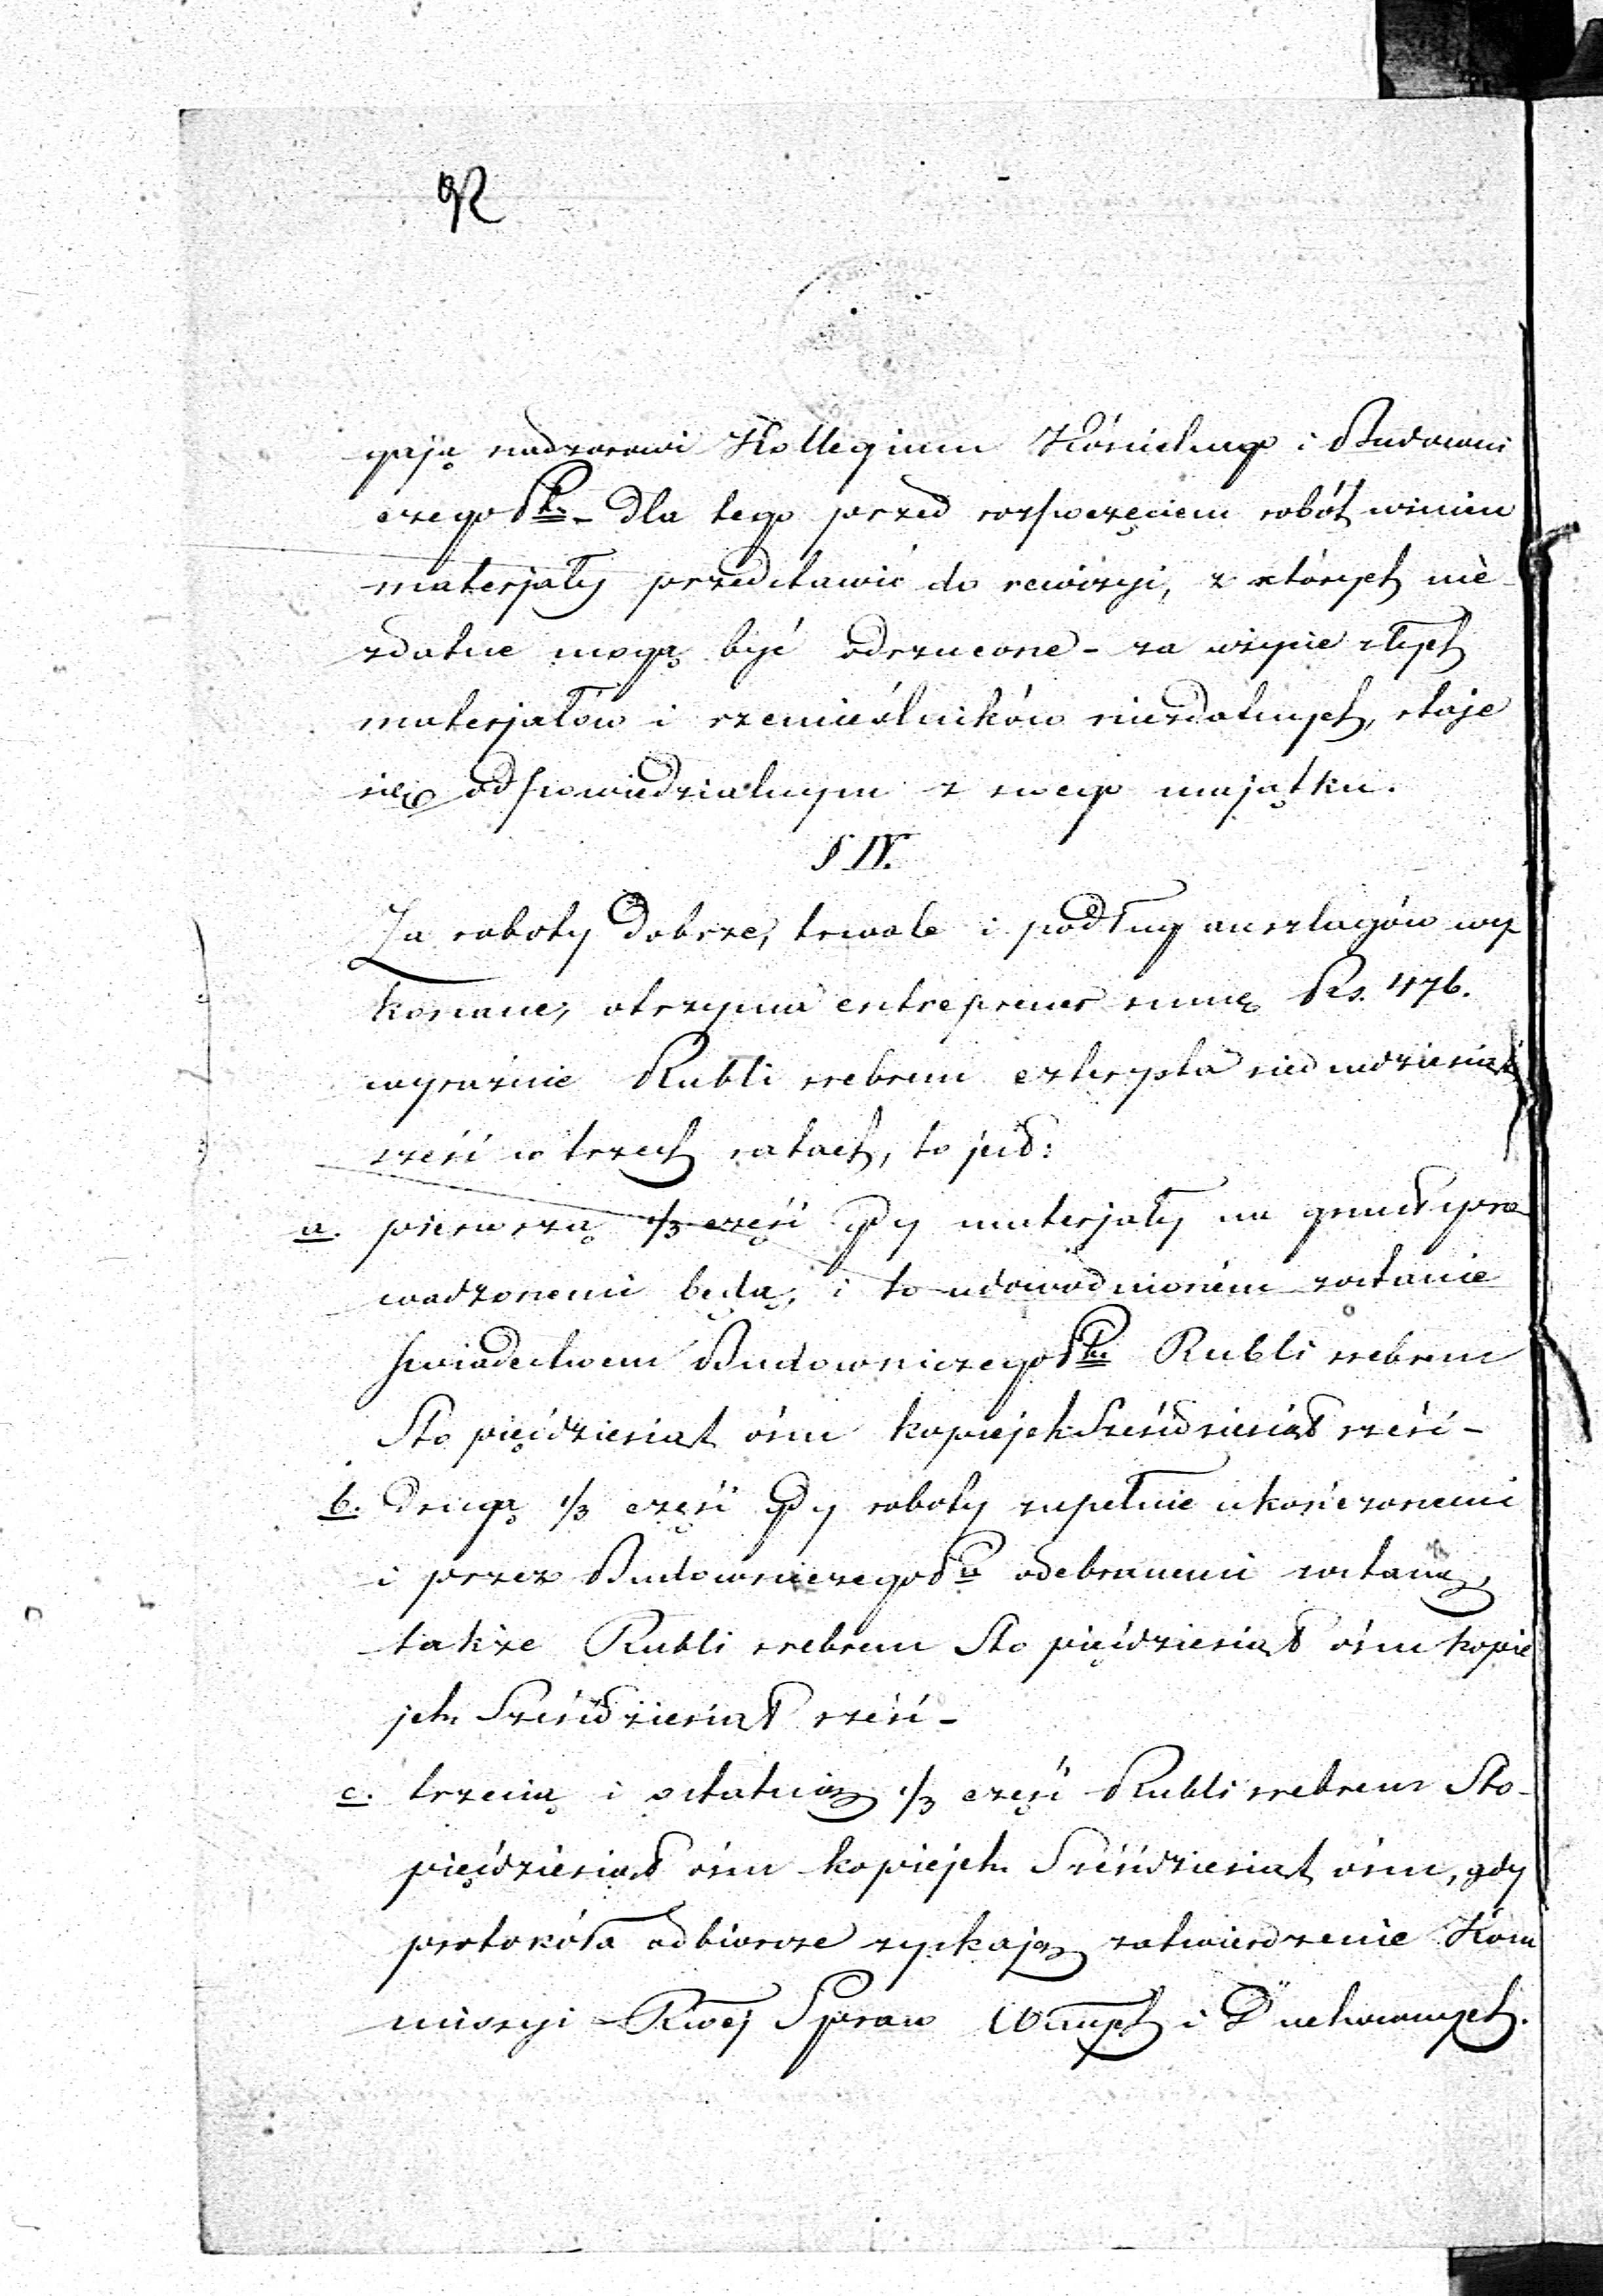 92
gają nadzorowi Kollegium Kościelnego i Budowni
czego Ptu. – Dla tego przed rozpoczęciem robót winien
materjały przedstawić do rewizyi, z których nie-
zdatne mogą być odrzucone – za użycie złych
materjałów i rzemieślników niezdatnych, staje
się odpowiedzialnym z swego majątku.
§ IV.
Za roboty dobrze, trwale i podług anszlagów wy
konane, otrzyma entreprener summę Rs. 476.
wyraźnie Rubli srebrem czterysta siedmdziesiąt
sześć w trzech ratach, to jest:
a. pierwszą 1/3 część gdy materjały na grunt spro
wadzonemi będą, i to udowodnionem zostanie
świadectwem Budowniczego Ptu Rubli srebrem
Sto pięćdziesiąt ośm kopiejek Sześćdziesiąt sześć –
b. drugą 1/3 część gdy roboty zupełnie ukończonemi
i przez Budowniczego Ptu odebranemi zostaną,
także Rubli srebrem Sto pięćdziesiąt ośm kopie
jek Sześćdziesiąt sześć –
c. trzecią i ostatnią 1/3 część Rubli srebrem Sto-
pięćdziesiąt ośm kopiejek Sześćdziesiąt ośm, gdy
protokóła odbiorcze zyskają zatwierdzenie Kom
missyi Rwej Spraw Wnnych i Duchownych.